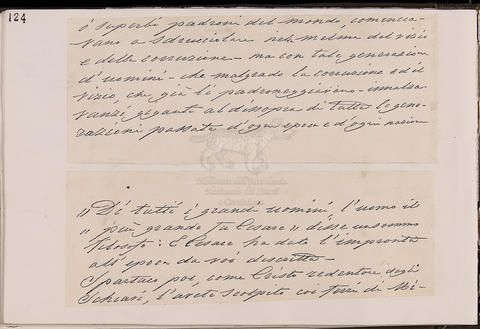 124
i superbi padroni del mondo, comincia-
vano a sdrucciolare nel melma del vizio
e della corruzione - ma con tale generazione
d'uomini - che malgrado la corruzione ed il
vizio, che già li padroneggiavano - innalza-
vansi, giganti al dissopra di tutte le gene-
razioni passate d'ogni epoca e d'ogni nazione
"Di tutti i grandi uomini, l'uomo il
"più grande fu Cesare" disse un sommo
filosofo: E Cesare ha dato l'impronta
all'epoca da voi descritta -
Spartaco poi, come Cristo redentore degli
Schiavi, l'avete scolpito coi ferri di Mi-